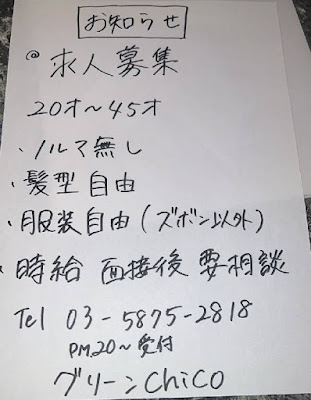 お知らせ
◎ 求人募集
20才～45才
・ノルマ無し
・髪型自由
・服装自由(ズボン以外)
・時給 面接後 要相談
Tel 03-5875-2818
PM20～受付
グリーンChiCO